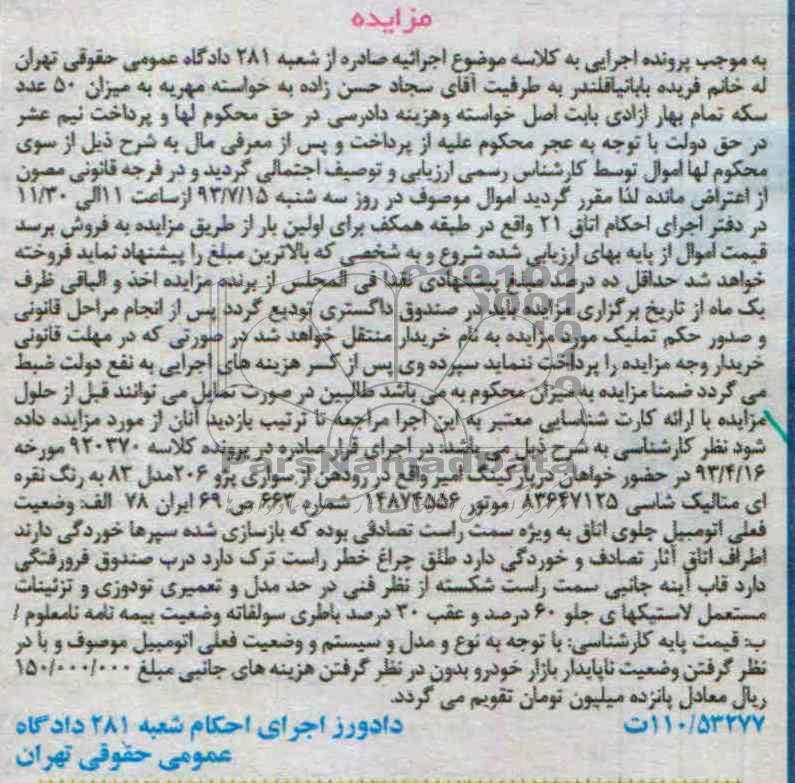 مزایده
به موجب پرونده اجرایی به کلاسه موضوع اجرائیه صادره از شعبه ۲۸۱ دادگاه عمومی حقوقی تهران
له خانم فریده بابانیاقلندر به طرفیت آقای سجاد حسن زاده به خواسته مهریه به میزان ۵۰ عدد
سکه تمام بهار ازادی بابت اصل خواسته وهزینه دادرسی در حق محکوم لها و پرداخت نیم عشر
در حق دولت با توجه به عجر محکوم علیه از پرداخت و پس از معرفی مال به شرح ذیل از سوی
محکوم لها اموال توسط کارشناس رسمی ارزیابی و توصیف اجتمالی گردید و در فرجه قانونی مصون
از اعتراض مانده لذا مقرر گردید اموال موصوف در روز سه شنبه ۹۳/۷/۱۵ ازساعت ۱۱الی ۱۱/۳۰
در دفتر اجرای احکام اتاق ۲۱ واقع در طبقه همکف برای اولین بار از طریق مزایده به فروش برسد
قیمت اموال از پایه بهای ارزیابی شده شروع و به شخصی که بالاترین مبلغ را پیشنهاد نماید فروخته
خواهد شد حداقل ده درصد مبلغ پیشنهادی نقد فی المجلس از برنده مزایده اخذ و الباقی ظرف
یک ماه از تاریخ برگزاری مزایده باید در صندوق دادگستری تودیع گردد پس از انجام مراحل قانونی
و صدور حکم تملیک مورد مزایده به نام خریدار منتقل خواهد شد در صورتی که در مهلت قانونی
خریدار وجه مزایده را پرداخت ننماید سپرده وی پس از کسر هزینه های اجرایی به نفع دولت ضبط
می گردد ضمنا مزایده به میزان محکوم به می باشد طالبین در صورت تمایل می توانند قبل از حلول
مزایده با ارائه کارت شناسایی معتبر به این اجرا مراجعه تا ترتیب بازدید آنان از مورد مزایده داده
شود نظر کارشناسی به شرح ذیل می باشد: در اجرای قرار صادره در پرونده کلاسه ۹۲۰۳۷۰ مورخه
۹۳/۴/۱۶ در حضور خواهان درپارکینگ امیر واقع در رودهن از سواری پژو ۲۰۶مدل ۸۳ به رنگ نقره
ای متالیک شاسی ۸۳۶۴۷۱۲۵ موتور ۱۴۸۷۴۵۵۶ شماره ۶۶۳ ص ۶۹ ایران ۷۸ الف: وضعیت
فعلی اتومبیل جلوی اتاق به ویژه سمت راست تصادفی بوده که بازسازی شده سپرها خوردگی دارند
اطراف اتاق آثار تصادف و خوردگی دارد طلق چراغ خطر راست ترک دارد درب صندوق فرورفتگی
دارد قاب آینه جانبی سمت راست شکسته از نظر فنی در حد مدل و تعمیری تودوزی و تزئینات
مستعمل لاستیکها ی جلو ۶۰ درصد و عقب ۳۰ درصد باطری سولفاته وضعیت بیمه نامه نامعلوم /
ب: قیمت پایه کارشناسی: با توجه به نوع و مدل و سیستم و وضعیت فعلی اتومبیل موصوف و با در
نظر گرفتن وضعیت ناپایدار بازار خودرو بدون در نظر گرفتن هزینه های جانبی مبلغ ۱۵۰/۰۰۰/۰۰۰
ریال معادل پانزده میلیون تومان تقویم می گردد.
دادورز اجرای احکام شعبه ۲۸۱ دادگاه
عمومی حقوقی تهران
۱۱۰/۵۳۲۷۷ت
ParsNamadData